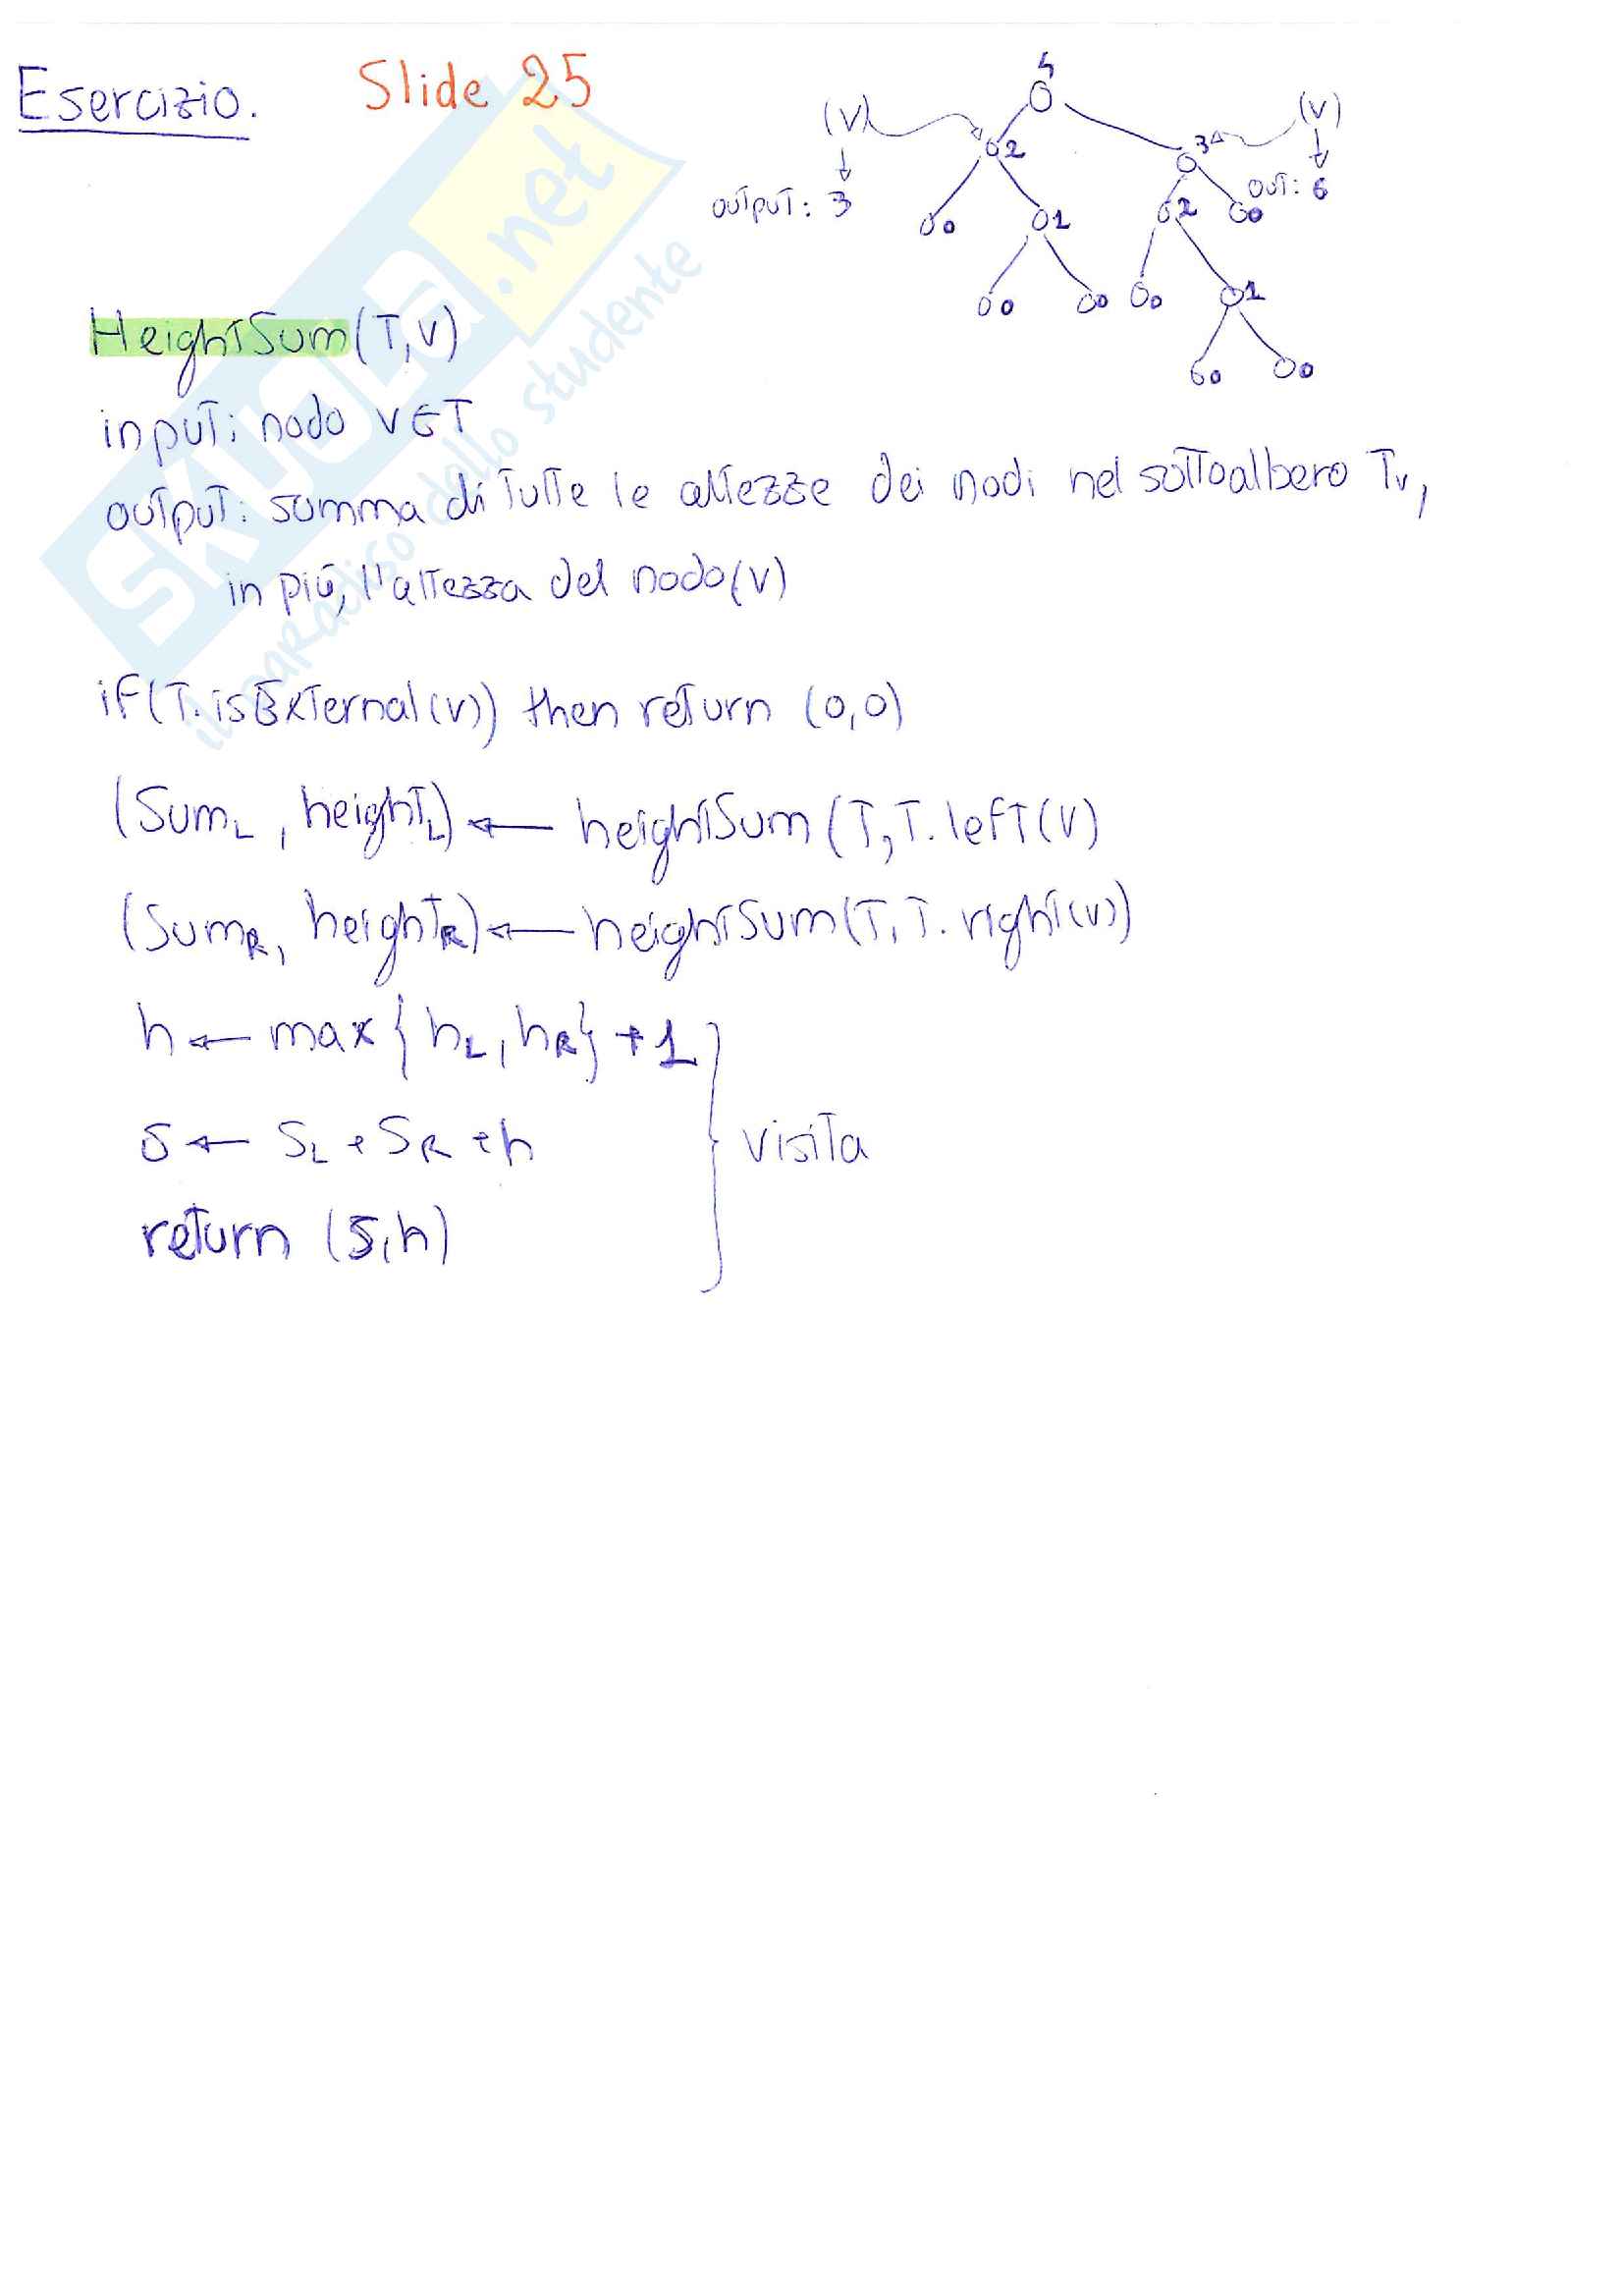 Esercizio. Slide 25
HeightSum(T,V)
input: nodo V∈T
output: somma di tutte le altezze dei nodi nel sottoalbero Tv,
in più, l'altezza del nodo(V)
if(T.isExternal(v)) then return (0,0)
(Sum_L, height_L) ← heightSum(T,T.left(V)
(Sum_R, height_R) ← heightSum(T,T.right(v))
h ← max{h_L, h_R}+1
S ← S_L + S_R + h
return (S,h)
visita
(V) 2 (V) 3
output: 3 out: 6
0 1 2 0
0 0 0 1
0 0
skuola.net
il paradiso dello studente